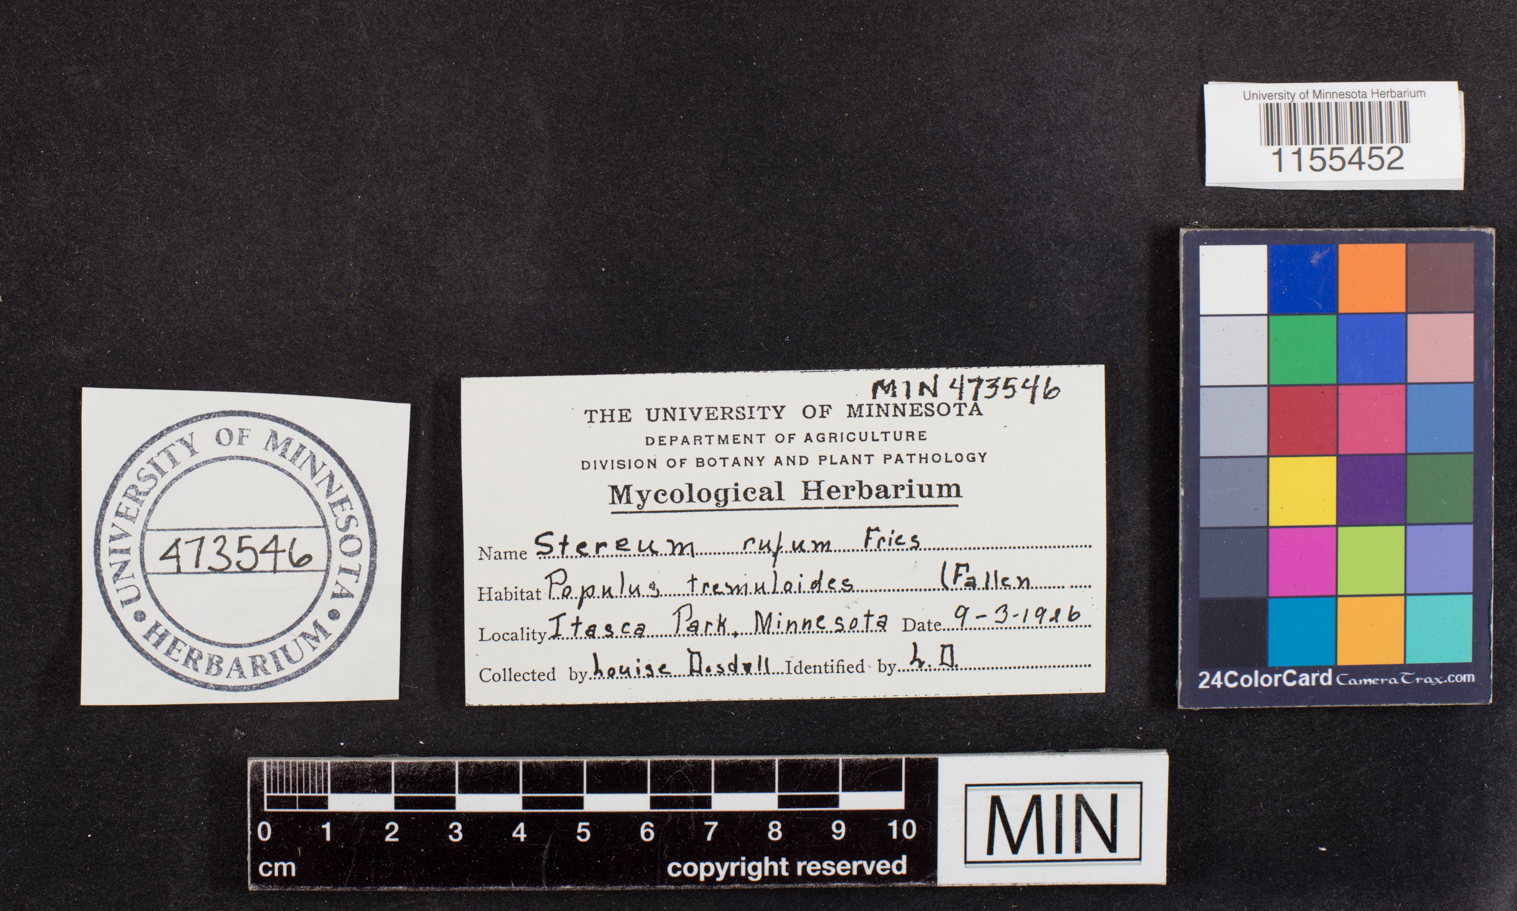 University of Minnesota Herbarium
1155452
MIN 473546
THE UNIVERSITY OF MINNESOTA
DEPARTMENT OF AGRICULTURE
DIVISION OF BOTANY AND PLANT PATHOLOGY
Mycological Herbarium
Name Stereum rufum Fries
Habitat Populus tremuloides (Fallen
Locality Itasca Park, Minnesota Date 9-3-1926
Collected by Louise Dosdall Identified by L. D.
UNIVERSITY OF MINNESOTA
473546
HERBARIUM
24ColorCard CameraTrax.com
0 1 2 3 4 5 6 7 8 9 10
cm copyright reserved
MIN